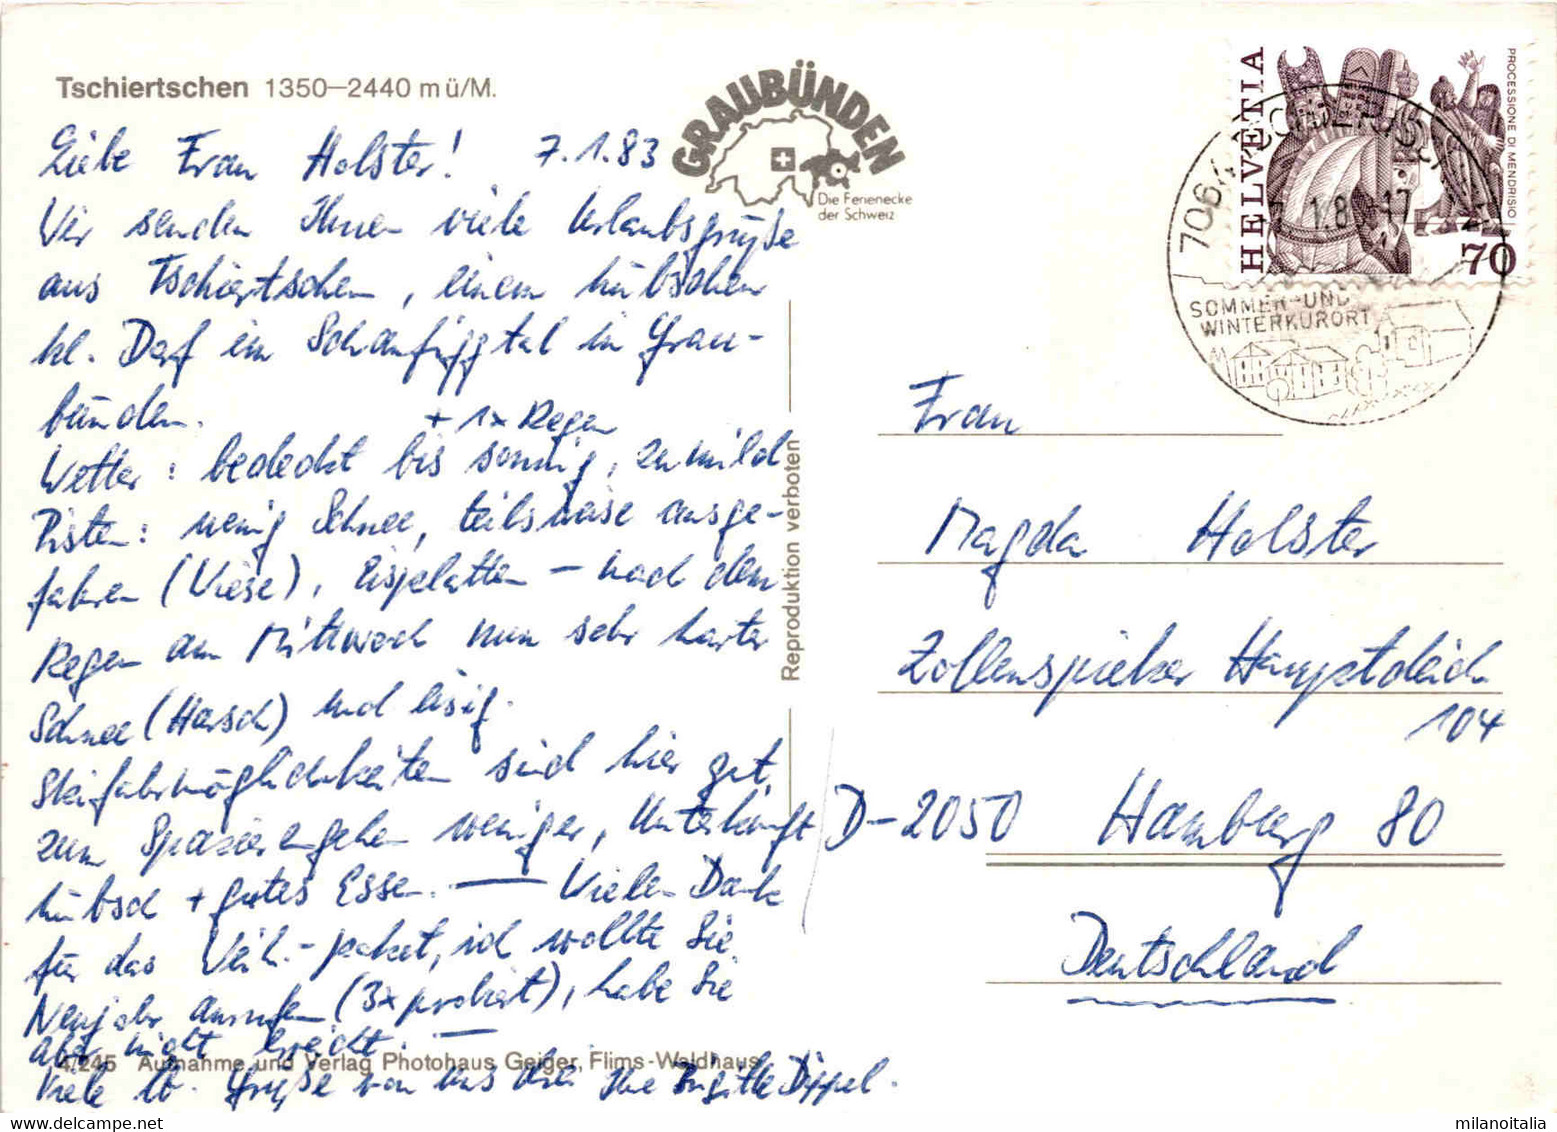 Tschiertschen 1350–2440 m ü/M.
Liebe Frau Holster! 7.1.83
Wir senden Ihnen viele Urlaubsgrüße
aus Tschiertschen, einem hübschen
kl. Dorf im Schanfiggtal in Grau-
bünden.
+ 1x Regen
Wetter: bedeckt bis sonnig, zu mild
Pisten: wenig Schnee, teilsweise ausge-
fahren (Wiese), Eisplatten – nach dem
Regen am Mittwoch nun sehr harter
Schnee (Harsch) und eisig.
Skifahrmöglichkeiten sind hier gut,
zum Spazierengehen weniger, Unterkunft
hübsch + gutes Essen. — Vielen Dank
für das Weih.-paket, ich wollte Sie
Neujahr anrufen (3x probiert), habe Sie
aber nicht erreicht. —
Viele lb. Grüße von uns drei Ihre Brigitte Dippel.
4/245 Aufnahme und Verlag Photohaus Geiger, Flims-Waldhaus
GRAUBÜNDEN
Die Ferienecke
der Schweiz
Reproduktion verboten
HELVETIA
PROCESSIONE DI MENDRISIO
70
7064 TSCHIERTSCHEN
SOMMER- UND
WINTERKURORT
Frau
Magda Holster
Zollenspieker Hauptdeich
104
D-2050 Hamburg 80
Deutschland
milanoitalia